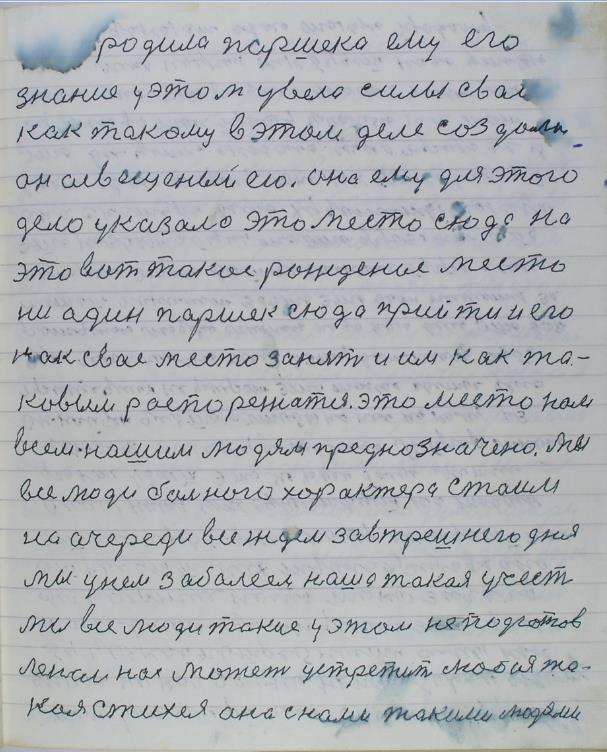 родила паршека ему его
знание у этом увело силы свае
как такому в этом деле создала
он освещеный ею. она ему для этого
дело указала это место сюда на
это вот такое рождение место
ни адин паршек сюда прийти и его
как свае место занят и им как та-
ковым распорежатся. это место нам
всем нашим людям предназначено. мы
все люди больного характера стаим
на очереди все ждем завтрешнего дня
мы у нем забалеем наша такая участ
мы все люди такие у этом не подготов
лены нас может устретит любая та-
кая стихея она с нами такими людями